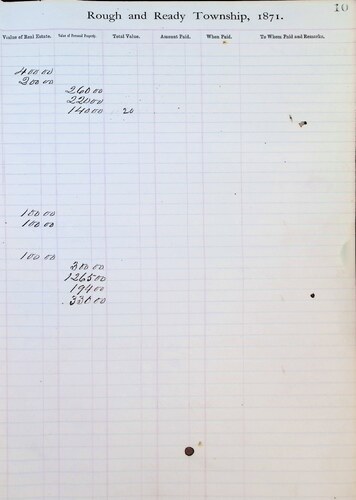 10
Rough and Ready Township, 1871.
Value of Real Estate. Value of Personal Property. Total Value. Amount Paid. When Paid. To Whom Paid and Remarks.
400 00
200 00
260 00
220 00
140 00 20
100 00
100 00
100 00
300 00
1265 00
194 00
330 00